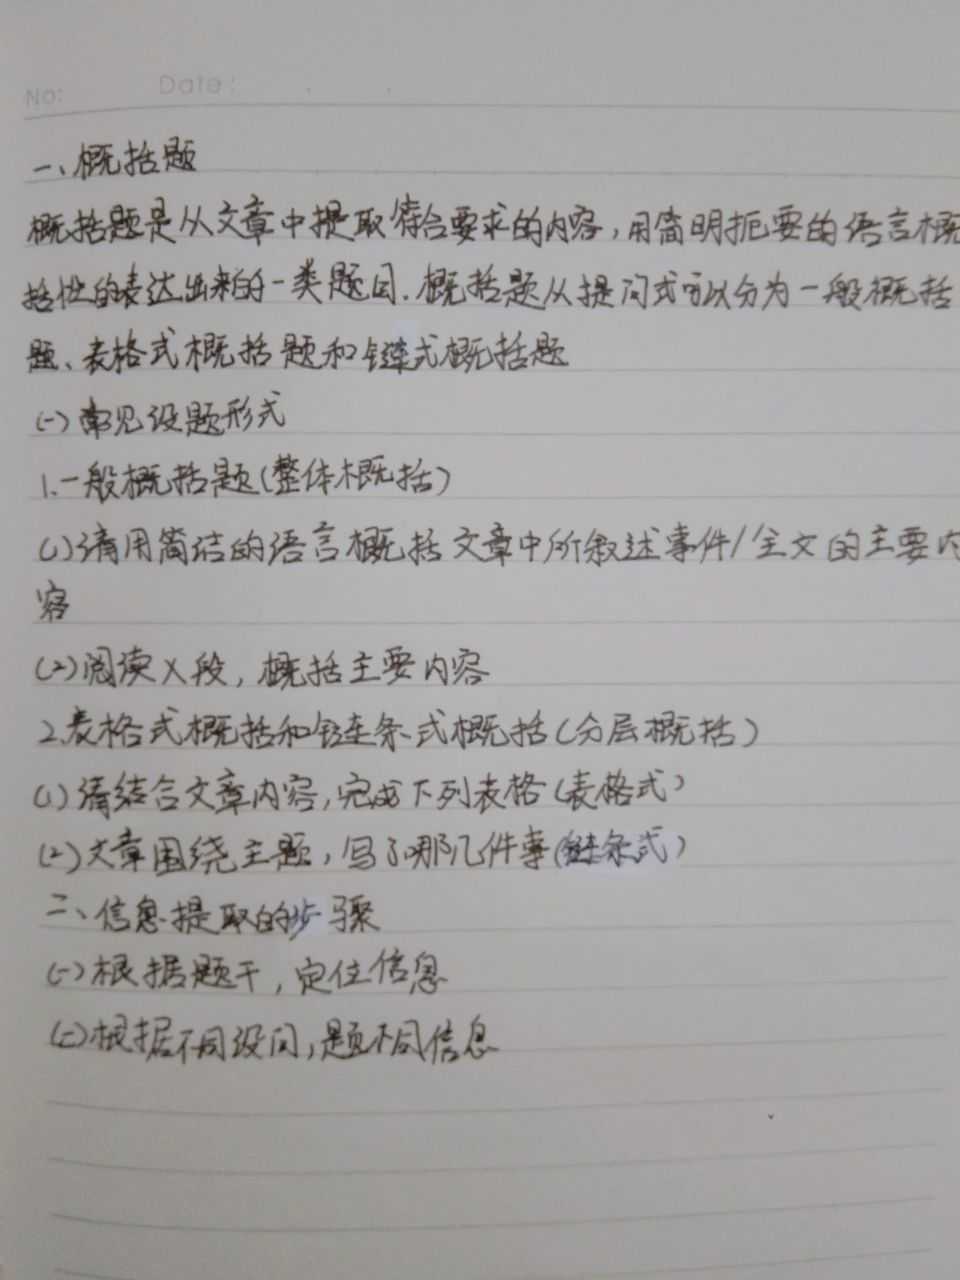 No:
Date:
一、概括题
概括题是从文章中提取符合要求的内容,用简明扼要的语言概
括性的表达出来的一类题目.概括题从提问式可以分为一般概括
题、表格式概括题和链式概括题
(一)常见设题形式
1.一般概括题(整体概括)
(1)请用简洁的语言概括文章中所叙述事件/全文的主要内
容
(2)阅读X段,概括主要内容
2.表格式概括和链条式概括(分层概括)
(1)请结合文章内容,完成下列表格(表格式)
(2)文章围绕主题,写了哪几件事(链条式)
二、信息提取的步骤
(一)根据题干,定位信息
(二)根据不同设问,题不同信息